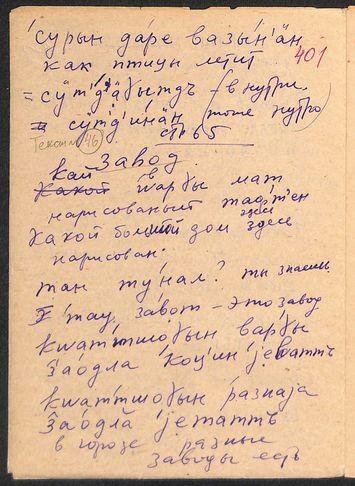 сурын да́ре вазы́н'ӓн
как птицы летит
401
= сӱ̄т'д'ӓɣытдъ (внутри.
= сӱ̄т'д'инӓн (тоже нутро)
стр 65
Текст №46
Завод.
кай
Какой варɣы мат
нарисованый тав́т'ен
здесь
Какой большой дом здесь
нарисован.
тан ту́нал? ты знаешь
тау за́вот – это завод
кwаттшоɣын варɣы
за́одла коц'ин је̄ватть
кwаттшоɣын ра́знаја
за́одла је̄татть
в городе разные
заводы есть